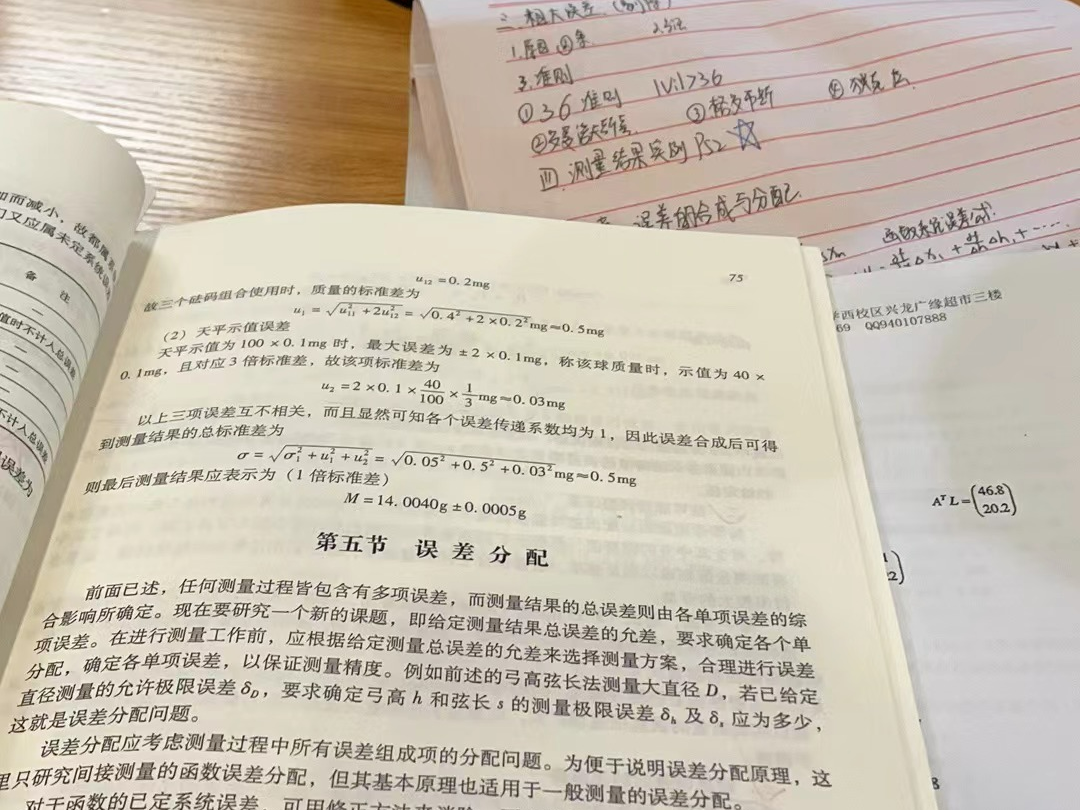 二. 粗大误差.
1.原因
3.准则
① 3σ 准则 |Vi|>3σ
四.测量结果实例 P52 ☆
误差的合成与分配
函数系统误差公式:
西校区兴龙广缘超市三楼
69 QQ940107888
AᵀL=(46.8
20.2)
如而减小，故都属
们又应属未定系统误
备 注
值时不计入总误差
—
—
不计入总误差
误差为
75
u₁₂=0.2mg
故三个砝码组合使用时，质量的标准差为
u₁=√(u₁₁²+2u₁₂²)=√(0.4²+2×0.2²)mg≈0.5mg
（2）天平示值误差
天平示值为 100×0.1mg 时，最大误差为 ±2×0.1mg，称该球质量时，示值为 40×
0.1mg，且对应 3 倍标准差，故该项标准差为
u₂=2×0.1×40/100×1/3mg≈0.03mg
以上三项误差互不相关，而且显然可知各个误差传递系数均为 1，因此误差合成后可得
到测量结果的总标准差为
σ=√(σ₁²+u₁²+u₂²)=√(0.05²+0.5²+0.03²)mg≈0.5mg
则最后测量结果应表示为（1 倍标准差）
M=14.0040g±0.0005g
第五节 误差分配
前面已述，任何测量过程皆包含有多项误差，而测量结果的总误差则由各单项误差的综
合影响所确定。现在要研究一个新的课题，即给定测量结果总误差的允差，要求确定各个单
项误差。在进行测量工作前，应根据给定测量总误差的允差来选择测量方案，合理进行误差
分配，确定各单项误差，以保证测量精度。例如前述的弓高弦长法测量大直径 D，若已给定
直径测量的允许极限误差 δ_D，要求确定弓高 h 和弦长 s 的测量极限误差 δ_h 及 δ_s 应为多少，
这就是误差分配问题。
误差分配应考虑测量过程中所有误差组成项的分配问题。为便于说明误差分配原理，这
里只研究间接测量的函数误差分配，但其基本原理也适用于一般测量的误差分配。
对于函数的已定系统误差，可用修正方法来消除